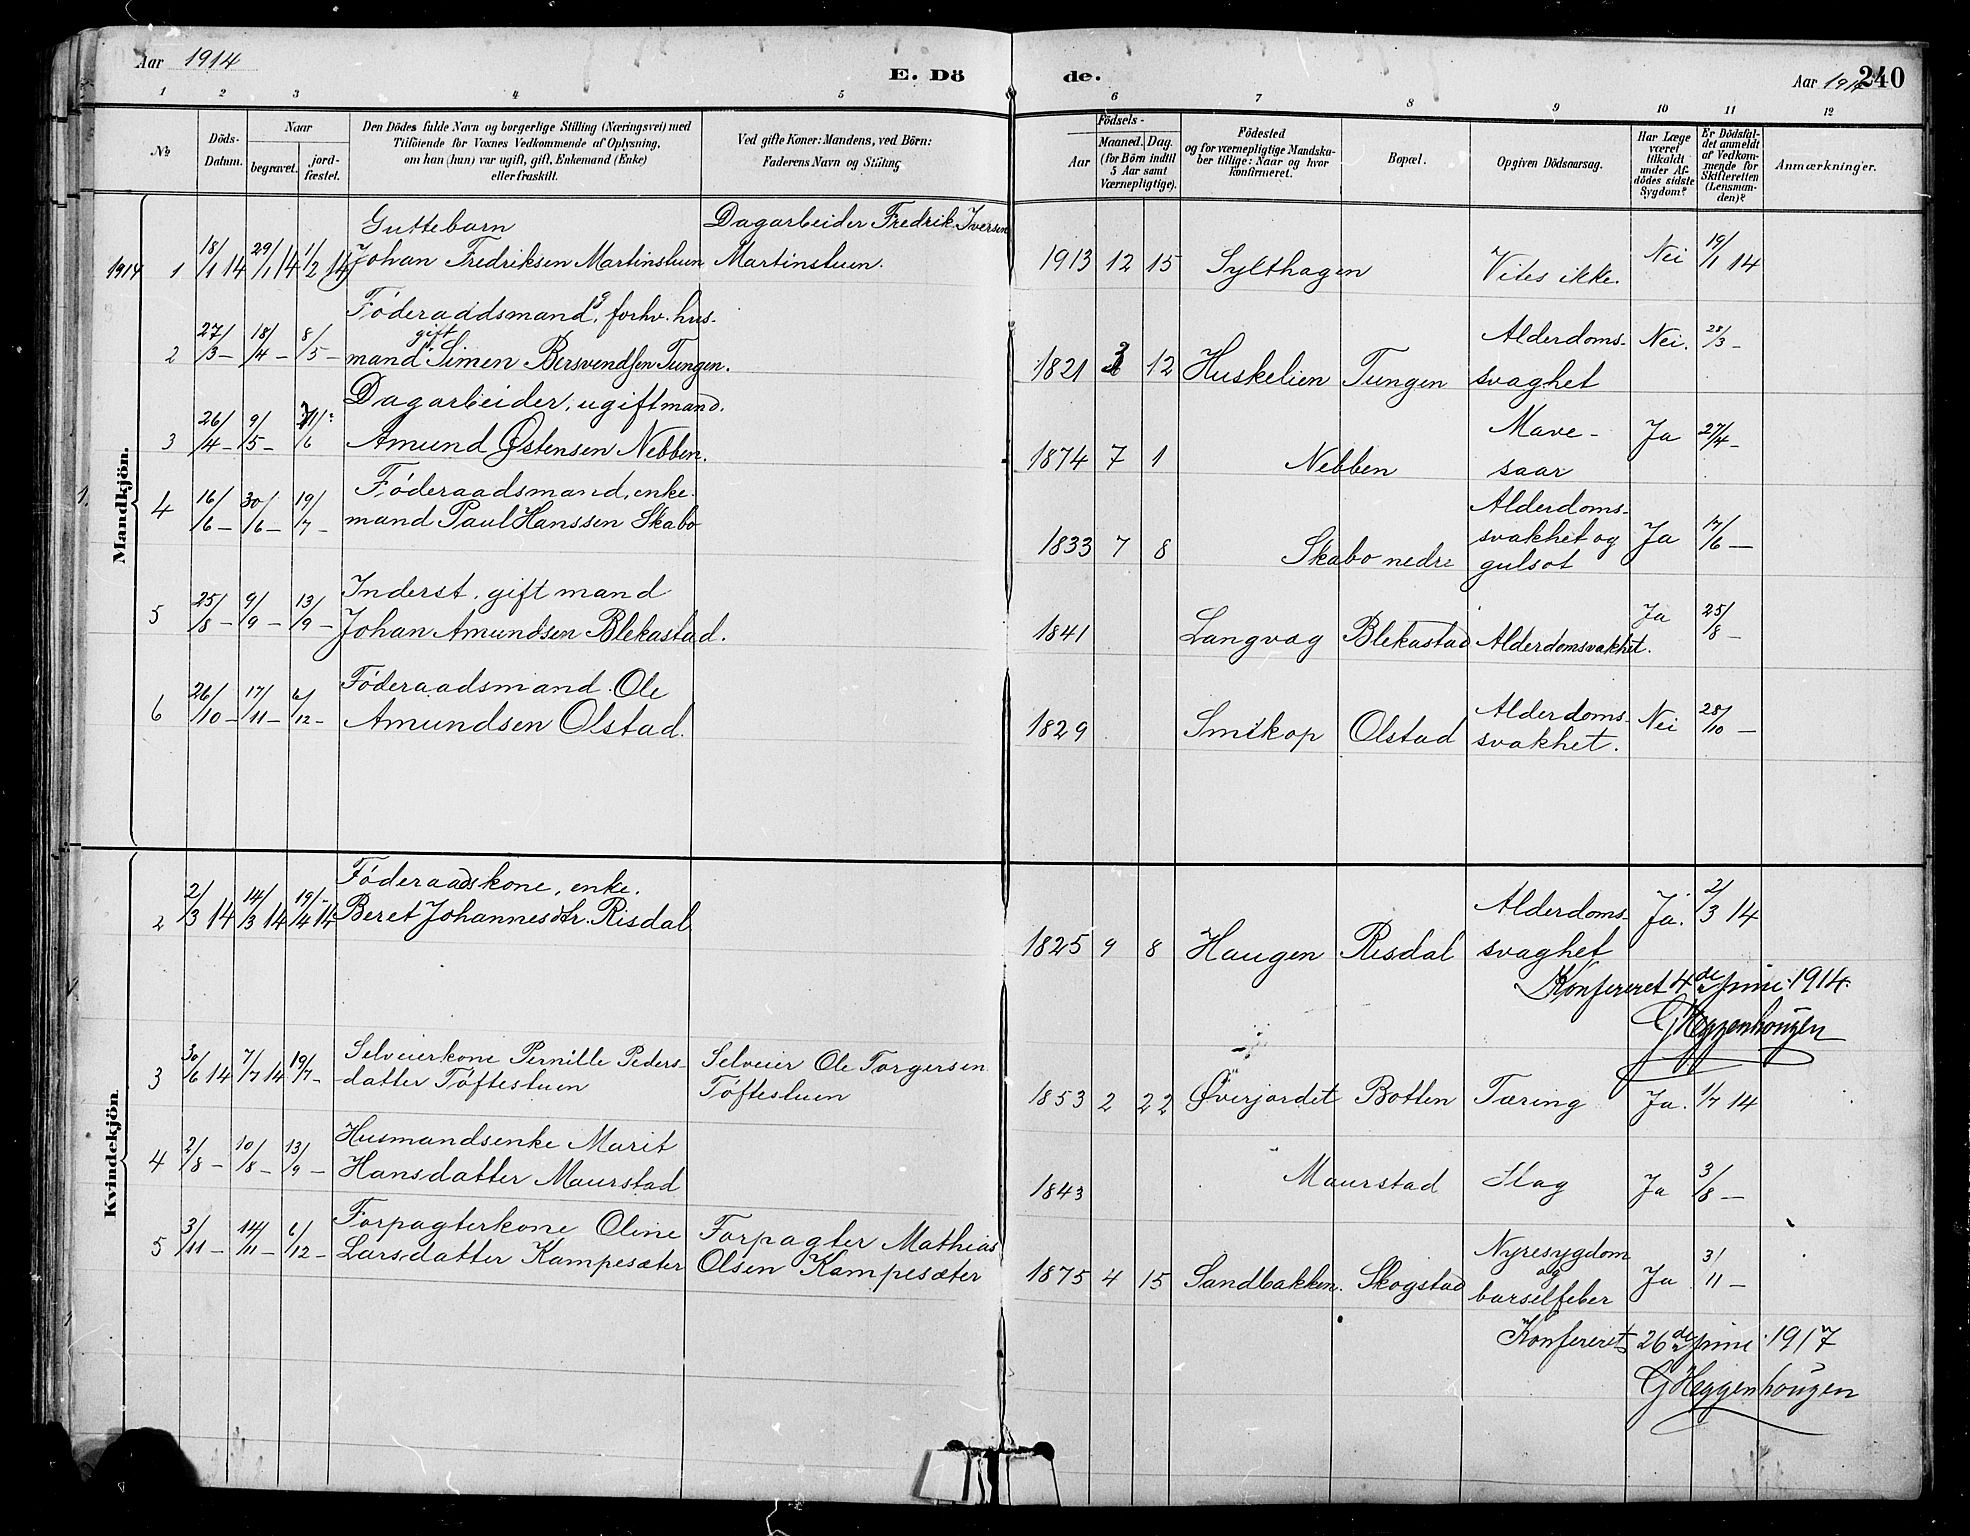 Aar 1914
E. Dö
de.
Aar 1914
240
1 2 3 4 5 6 7 8 9 10 11 12
No
Döds-
Datum.
Naar
begravet.
jord-
fæstet.
Den Dödes fulde Navn og borgerlige Stilling (Næringsvei) med
Tilföiende for Voxnes Vedkommende af Oplysning,
om han (hun) var ugift, gift, Enkemand (Enke)
eller fraskilt.
Ved gifte Koner: Mandens, ved Börn:
Faderens Navn og Stilling
Födsels-
Aar
Maaned. Dag.
(for Börn indtil
5 Aar samt
Værnepligtige).
Födested
og for værnepligtige Mandska-
ber tillige: Naar og hvor
konfirmeret.
Bopæl.
Opgiven Dödsaarsag.
Har Læge
været
tilkaldt
under Af-
dödes sidste
Sygdom?
Er Dödsfal-
det anmeldt
af Vedkom-
mende for
Skifteretten
(Lensman-
den)?
Anmærkninger.
Mandkjön.
1914 1 18/1 14 29/1 14 1/2 14
Guttebarn
Johan Fredriksen Martinstuen
Dagarbeider Fredrik Iversen
Martinstuen.
1913 12 15 Sylthagen Vites ikke. Nei 19/1 14
2 27/3 - 18/4 - 8/5 -
Føderaadsmand, forhv. hus-
gift
mand Simen Bersvendsen Tungen.
1821 3 12 Huskelien Tungen
Alderdoms-
svaghet
Nei. 28/3 -
3 26/4 - 9/5 -
Dagarbeider, ugift mand.
Amund Østensen Nebben.
1874 7 1 Nebben
Mave-
saar
Ja 27/4 -
4 16/6 - 30/6 - 19/7 -
Føderaadsmand, enke-
mand Paul Hanssen Skabo
1833 7 8 Skabo nedre
Alderdoms-
svakhet og
gulsot
Ja 17/6 -
5 25/8 - 9/9 - 13/9 -
Inderst, gift mand
Johan Amundsen Blekastad.
1841 Langvag Blekastad Alderdomsvakhet. Ja 25/8 -
6 26/10 - 17/11 - 6/12 -
Føderaadsmand Ole
Amundsen Olstad.
1829 Smikop Olstad
Alderdoms-
svakhet.
Nei 28/10 -
Kvindekjön
2 2/3 14 14/3 14 19/4 14
Føderaadskone, enke.
Beret Johannesdtr. Risdal
1825 9 8 Haugen Risdal
Alderdoms-
svaghet
Ja. 2/3 14
Konfereret 4de juni 1914.
G Heggenhougen
3 30/6 14 7/7 14 19/7 -
Selveierkone Pernille Peders-
datter Tøftestuen
Selveier Ole Torgersen
Tøftestuen
1853 2 22 Øverjordet Botten Tæring Ja. 1/7 14
4 2/8 - 10/8 - 13/9 -
Husmandsenke Marit
Hansdatter Maurstad
1843 Maurstad Slag Ja 3/8 -
5 3/11 - 14/11 - 6/12 -
Forpagterkone Oline
Larsdatter Kampesæter
Forpagter Mathias
Olsen Kampesæter
1875 4 15 Sandbakken. Skogstad
Nyresygdom
og
barselfeber
Ja 3/11 -
Konfereret 26de juni 1917
G Heggenhougen